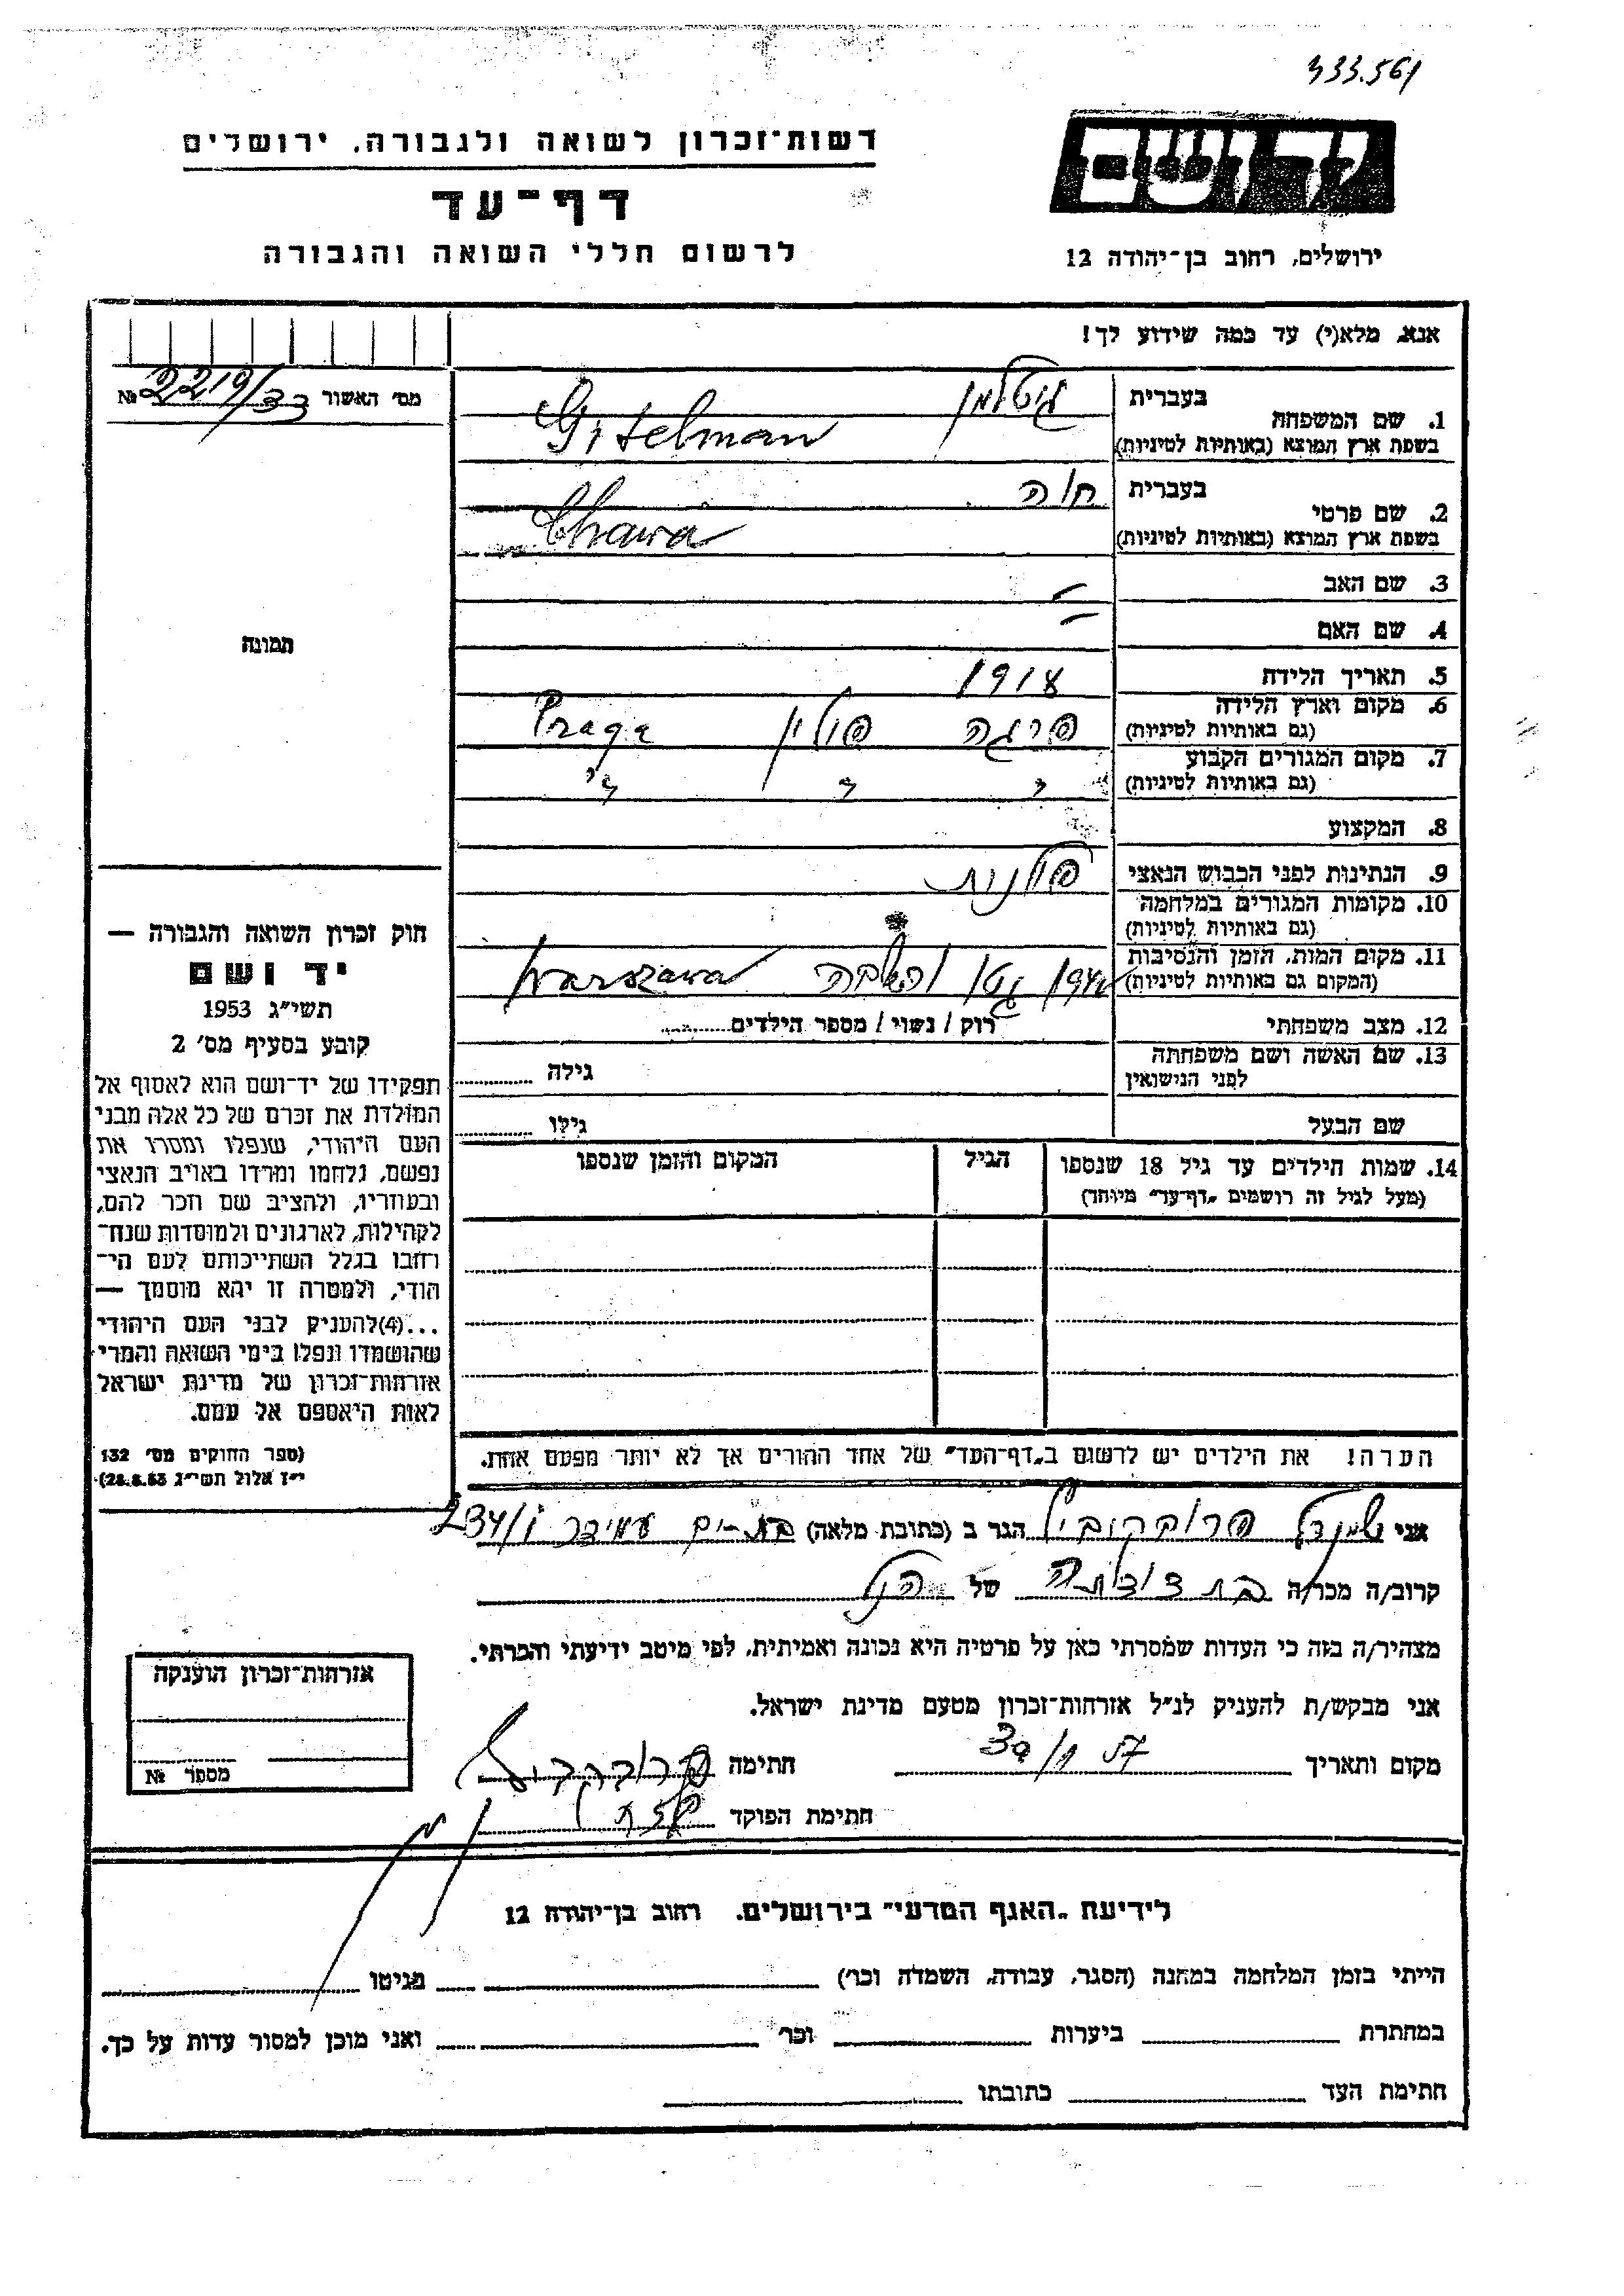 333.561
יד ושם
רשות־זכרון לשואה ולגבורה, ירושלים
דף־עד
לרשום חללי השואה והגבורה
ירושלים, רחוב בן־יהודה 12
אנא, מלא(י) עד כמה שידוע לך!
מס' האשור № 2219/33
תמונה
1. שם המשפחה בעברית גיטלמן
בשפת ארץ המוצא (באותיות לטיניות) Gitelman
2. שם פרטי בעברית חוה
בשפת ארץ המוצא (באותיות לטיניות) Chawa
3. שם האב –
4. שם האם –
5. תאריך הלידה 1918
6. מקום וארץ הלידה (גם באותיות לטיניות) פרגה פולין Praga
7. מקום המגורים הקבוע (גם באותיות לטיניות)
8. המקצוע
9. הנתינות לפני הכבוש הנאצי פולנית
10. מקומות המגורים במלחמה (גם באותיות לטיניות)
11. מקום המות, הזמן והנסיבות (המקום גם באותיות לטיניות) גטו Warszawa
12. מצב משפחתי רוק / נשוי / מספר הילדים
13. שם האשה ושם משפחתה לפני הנישואין גילה
שם הבעל גילו
14. שמות הילדים עד גיל 18 שנספו
(מעל לגיל זה רושמים „דף־עד" מיוחד)
הגיל
המקום והזמן שנספו
הערה! את הילדים יש לרשום ב„דף־העד" של אחד ההורים אך לא יותר מפעם אחת.
חוק זכרון השואה והגבורה —
יד ושם
תשי״ג 1953
קובע בסעיף מס' 2
תפקידו של יד־ושם הוא לאסוף אל
המולדת את זכרם של כל אלה מבני
העם היהודי, שנפלו ומסרו את
נפשם, נלחמו ומרדו באויב הנאצי
ובעוזריו, ולהציב שם וזכר להם,
לקהילות, לארגונים ולמוסדות שנח־
רבו בגלל השתייכותם לעם הי־
הודי, ולמטרה זו יהא מוסמך —
...(4)להעניק לבני העם היהודי
שהושמדו ונפלו בימי השואה והמרי
אזרחות־זכרון של מדינת ישראל
לאות היאספם אל עמם.
(ספר החוקים מס' 132
י״ז אלול תשי״ג 28.8.53)
אני הגר ב (כתובת מלאה) בת-ים עמידר 234/1
קרוב/ה מכר/ה בת דודתה של הנ״ל
מצהיר/ה בזה כי העדות שמסרתי כאן על פרטיה היא נכונה ואמיתית, לפי מיטב ידיעתי והכרתי.
אני מבקש/ת להעניק לנ״ל אזרחות־זכרון מטעם מדינת ישראל.
מקום ותאריך חתימה
חתימת הפוקד
אזרחות־זכרון הוענקה
מספר №
לידיעת „האגף המדעי" בירושלים, רחוב בן־יהודה 12
הייתי בזמן המלחמה במחנה (הסגר, עבודה, השמדה וכו') בגיטו
במחתרת ביערות וכו' ואני מוכן למסור עדות על כך.
חתימת העד כתובתו